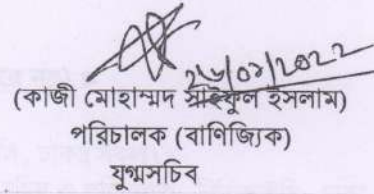 ২৬/০১/২০২২
(কাজী মোহাম্মদ সাইফুল ইসলাম)
পরিচালক (বাণিজ্যিক)
যুগ্মসচিব